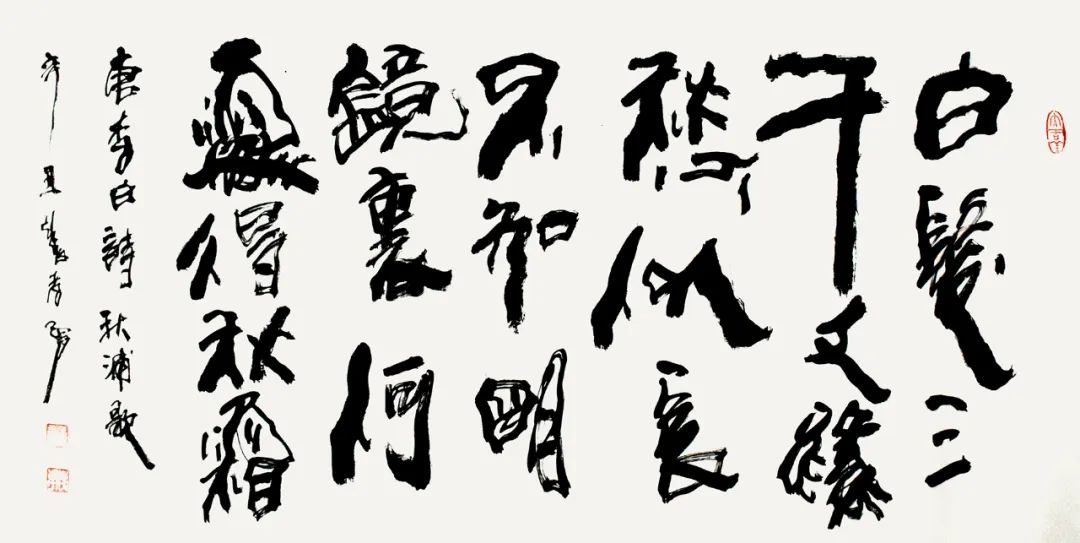 白髮三
千丈緣
愁似長
不知明
鏡裏何
處得秋霜
唐李白詩秋浦歌
辛丑